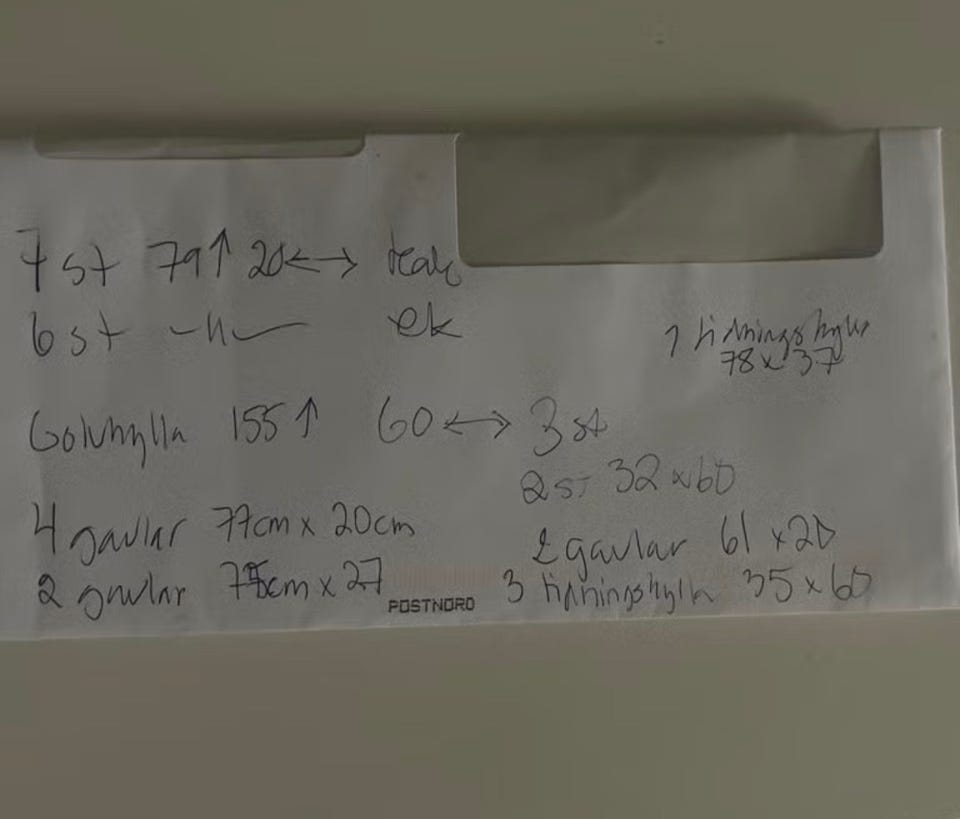 7 st 79↑ 20↔ teak
6 st —〃— ek
1 tidningshylla
78 x 37
Golvhylla 155↑ 60↔ 3 st
2 st 32 x 60
4 gavlar 77cm x 20cm
2 gavlar 61 x 20
2 gavlar cm x 27
3 tidningshylla 35 x 60
POSTNORD